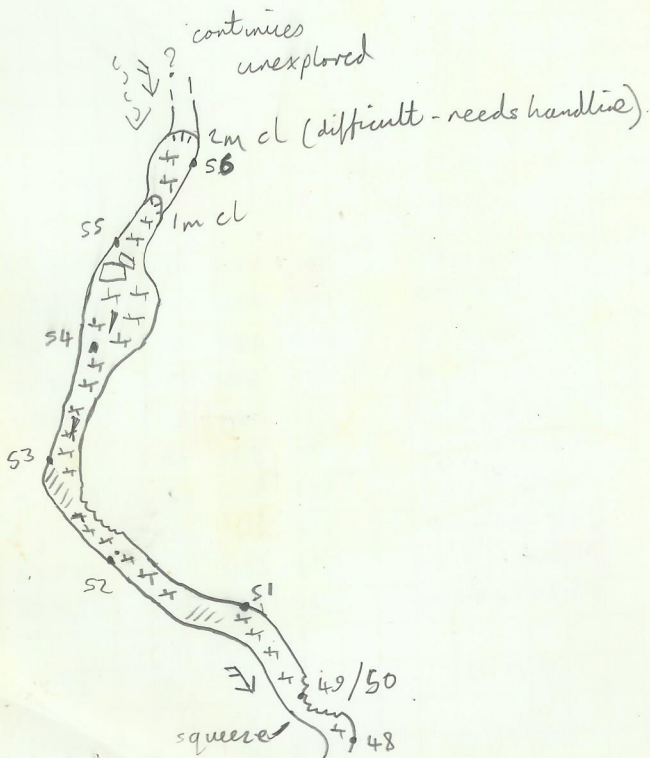 continues
?
unexplored
2m cl (difficult - needs handline).
56
1m cl
55
54
53
52
51
49/50
squeeze
48